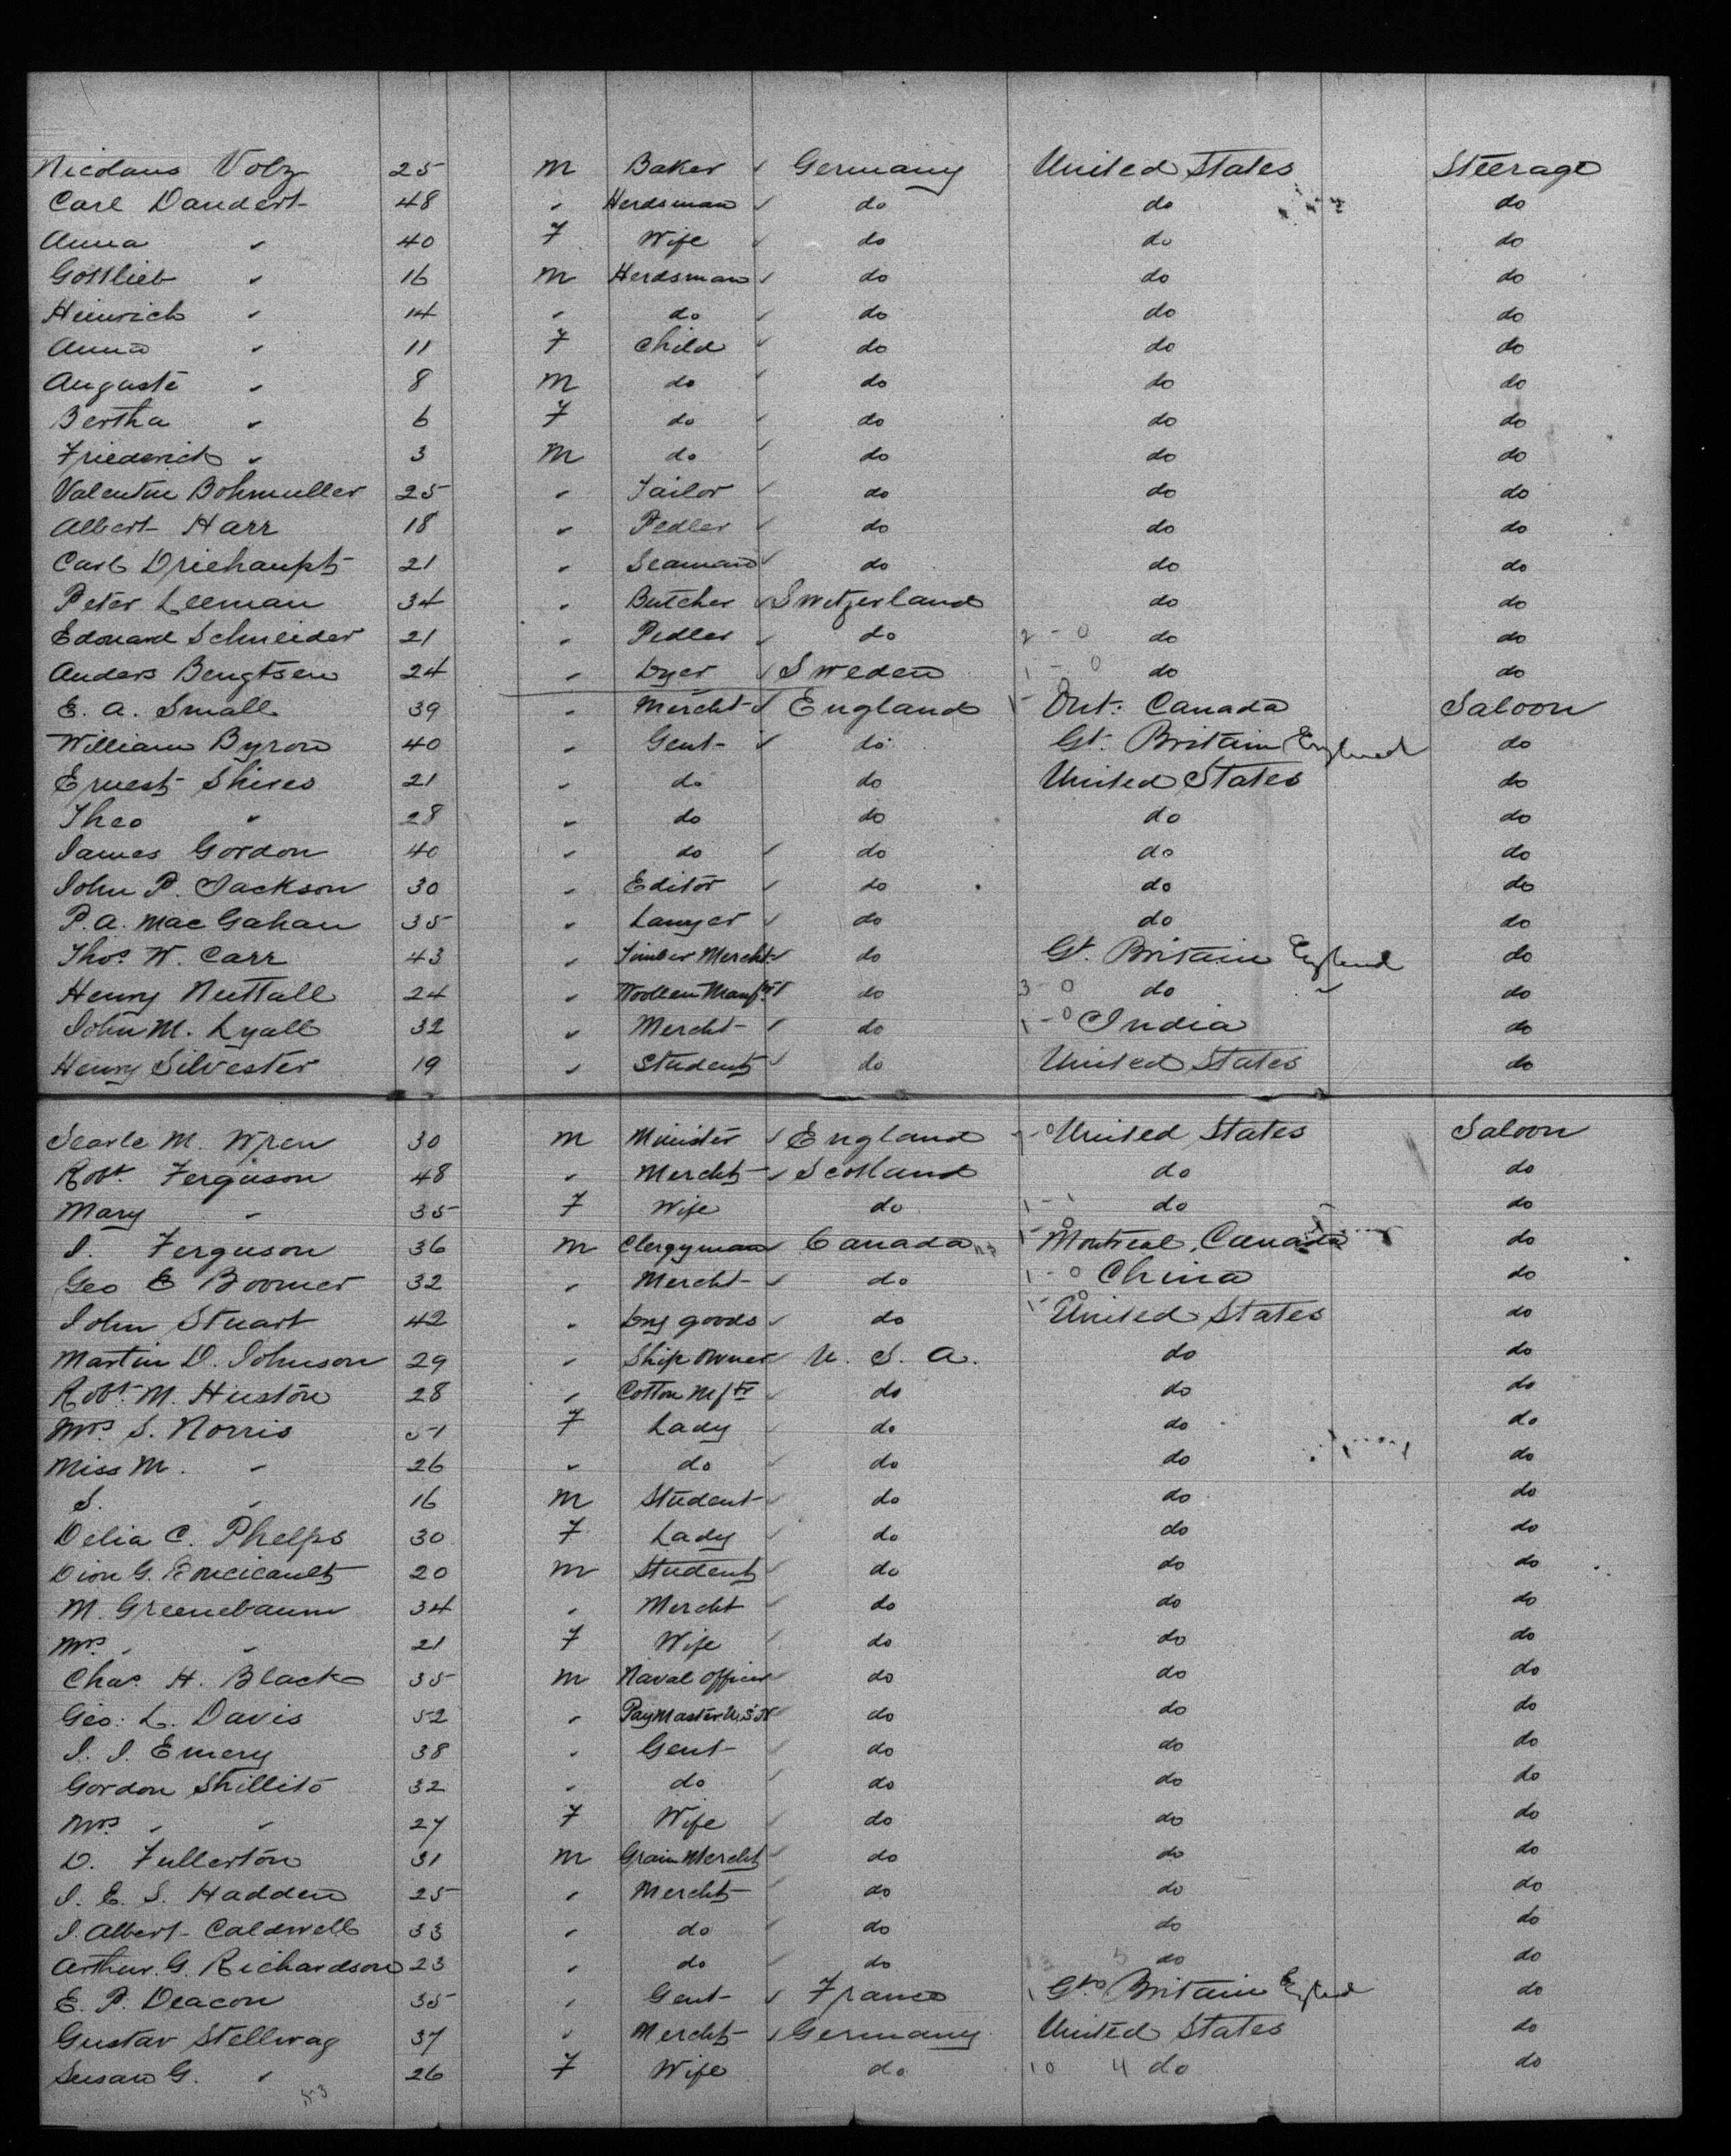 Nicolaus Volz 25 M Baker ✓ Germany United States Steerage
Carl Dandert 48 " Herdsman ✓ do do do
Anna " 40 F Wife ✓ do do do
Gottlieb " 16 M Herdsman ✓ do do do
Heinrich " 14 " do ✓ do do do
Anna " 11 F Child ✓ do do do
Auguste " 8 M do ✓ do do do
Bertha " 6 F do ✓ do do do
Friederich " 3 M do ✓ do do do
Valentin Bohmuller 25 " Tailor ✓ do do do
Albert Harr 18 " Pedler ✓ do do do
Carl Driehaupt 21 " Seaman ✓ do do do
Peter Leeman 34 " Butcher ✓ Switzerland do do
Edouard Schneider 21 " Pedler ✓ do 2 - 0 do do
Anders Bengtsen 24 " Dyer ✓ Sweden 1 - 0 do do
E. A. Small 39 " Mercht ✓ England 1 - 0 Ont. Canada Saloon
William Byron 40 " Gent ✓ do Gt. Britain England do
Ernest Shires 21 " do do United States do
Theo " 28 " do do do do
James Gordon 40 " do ✓ do do do
John P. Jackson 30 " Editor ✓ do do do
P. A. MacGahan 35 " Lawyer ✓ do do do
Thos. W. Carr 43 " Timber Mercht ✓ do Gt. Britain England do
Henry Nuttall 24 " Woollen Manfr ✓ do 3 - 0 do " do
John M. Lyall 32 " Mercht ✓ do 1 - 0 India do
Henry Silvester 19 " Student ✓ do United States do
Searle M. Wren 30 M Minister ✓ England 7 - 0 United States Saloon
Robt. Ferguson 48 " Mercht ✓ Scotland do do
Mary " 35 F Wife do 1 - 1 do do
J. Ferguson 36 M Clergyman ✓ Canada 1 - 0 Montreal, Canada do
Geo E Boomer 32 " Mercht ✓ do 1 - 0 China do
John Stuart 42 " Dry goods ✓ do 1 - 0 United States do
Martin D. Johnson 29 " Ship Owner U. S. A. do do
Robt. M. Huston 28 " Cotton Mftr ✓ do do do
Mrs. S. Norris 51 F Lady ✓ do do do
Miss M. " 26 " do ✓ do do do
S. " 16 M Student ✓ do do do
Delia C. Phelps 30 F Lady ✓ do do do
Dion G. Boucicault 20 M Student ✓ do do do
M. Greenebaum 34 " Mercht ✓ do do do
Mrs. " " 21 F Wife ✓ do do do
Chas. H. Black 35 M Naval Officer ✓ do do do
Geo: L. Davis 52 " PayMaster U.S.N do do do
J. J. Emery 38 " Gent ✓ do do do
Gordon Shillito 32 " do ✓ do do do
Mrs. " " 27 F Wife ✓ do do do
D. Fullerton 31 M Grain Mercht do do do
J. E. S. Hadden 25 " Mercht ✓ do do do
J. Albert Caldwell 33 " do ✓ do do do
Arthur. G. Richardson 23 " do ✓ do 13 5 do do
E. P. Deacon 35 " Gent ✓ France 1 Gt. Britain England do
Gustav Stellwag 37 " Mercht ✓ Germany United States do
Susan G. " 26 F Wife do 10 4 do do
53